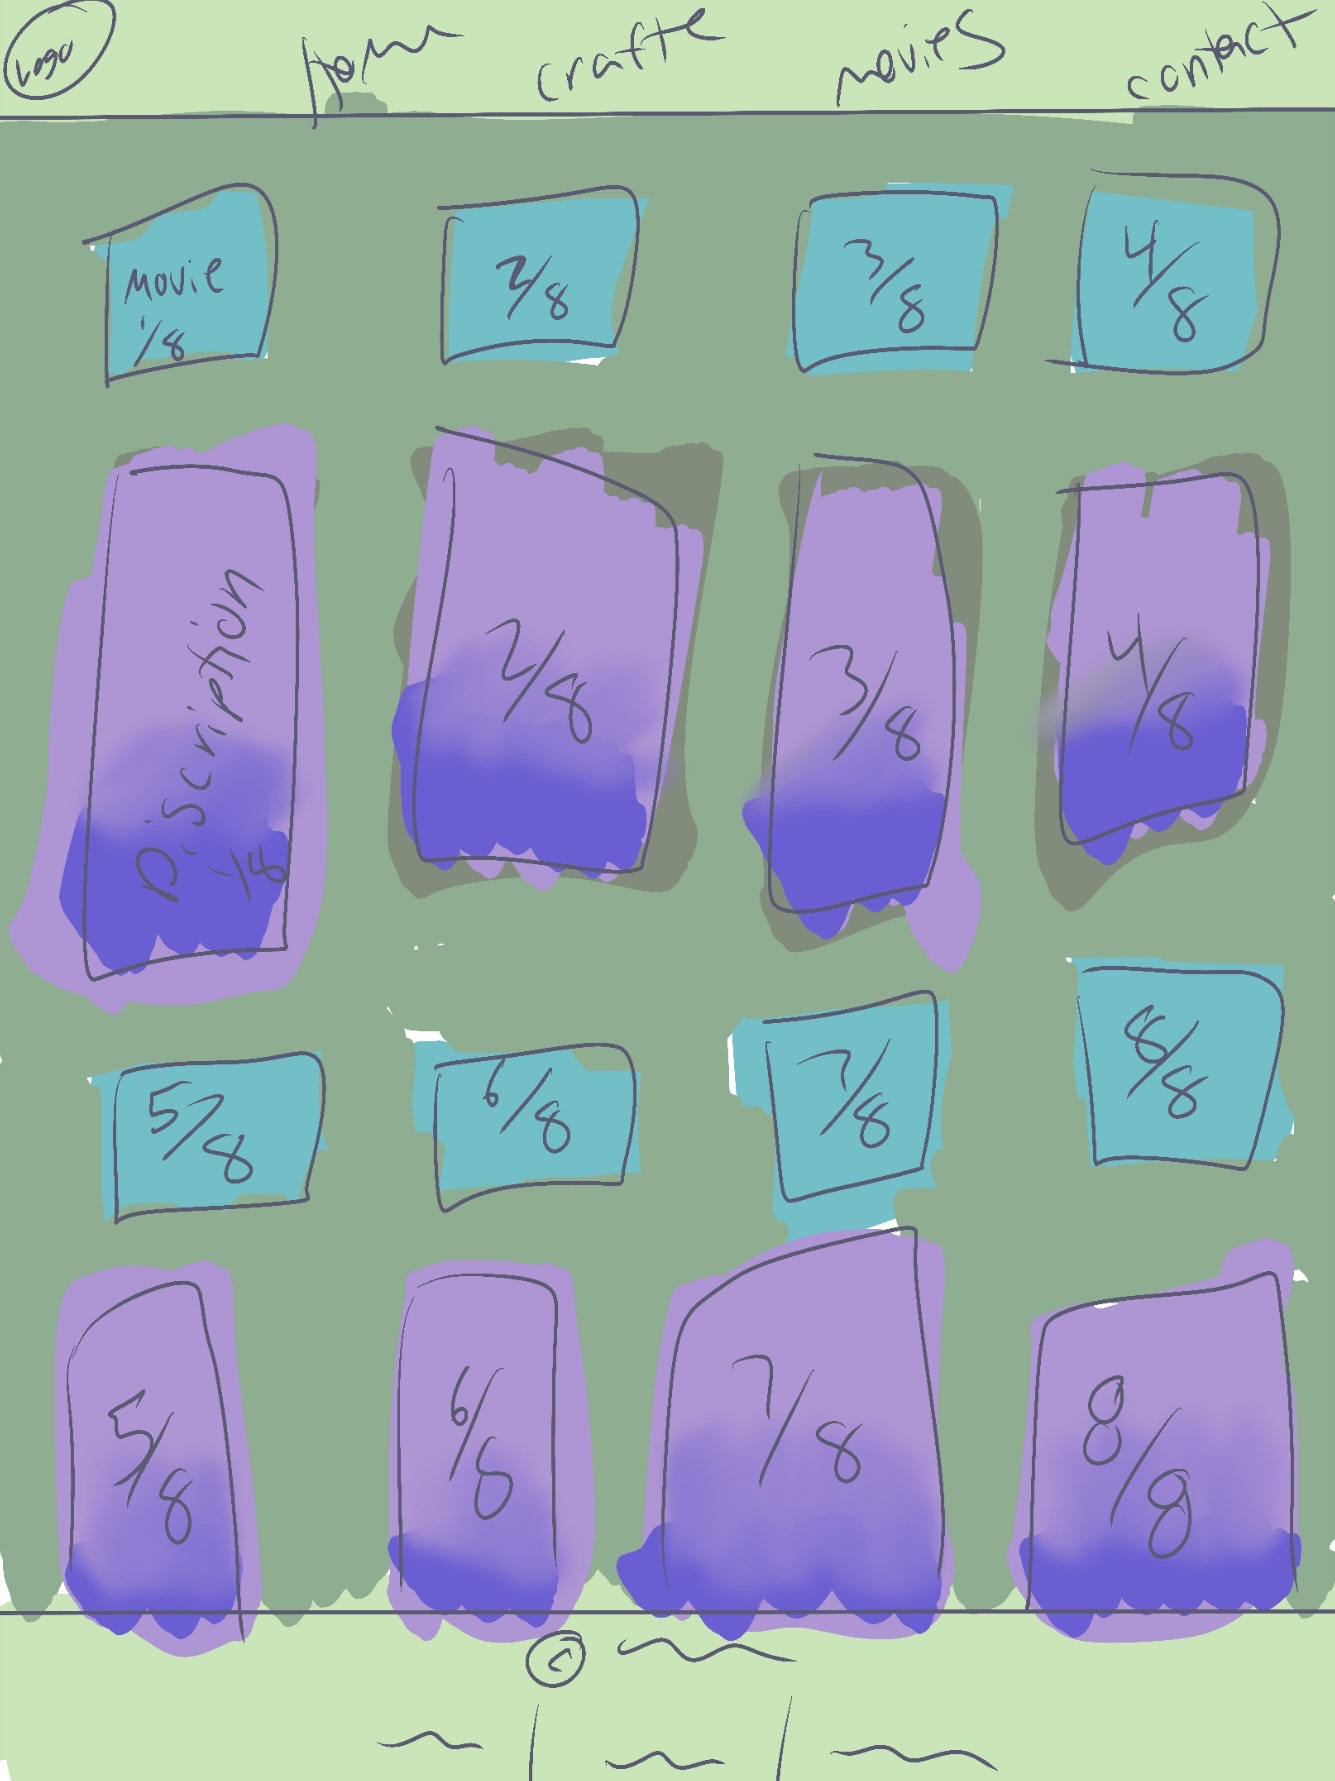 Logo
Home
crafte
movies
contact
Movie
1/8
2/8
3/8
4/8
Discription
1/8
2/8
3/8
4/8
5/8
6/8
7/8
8/8
5/8
6/8
7/8
8/8
©